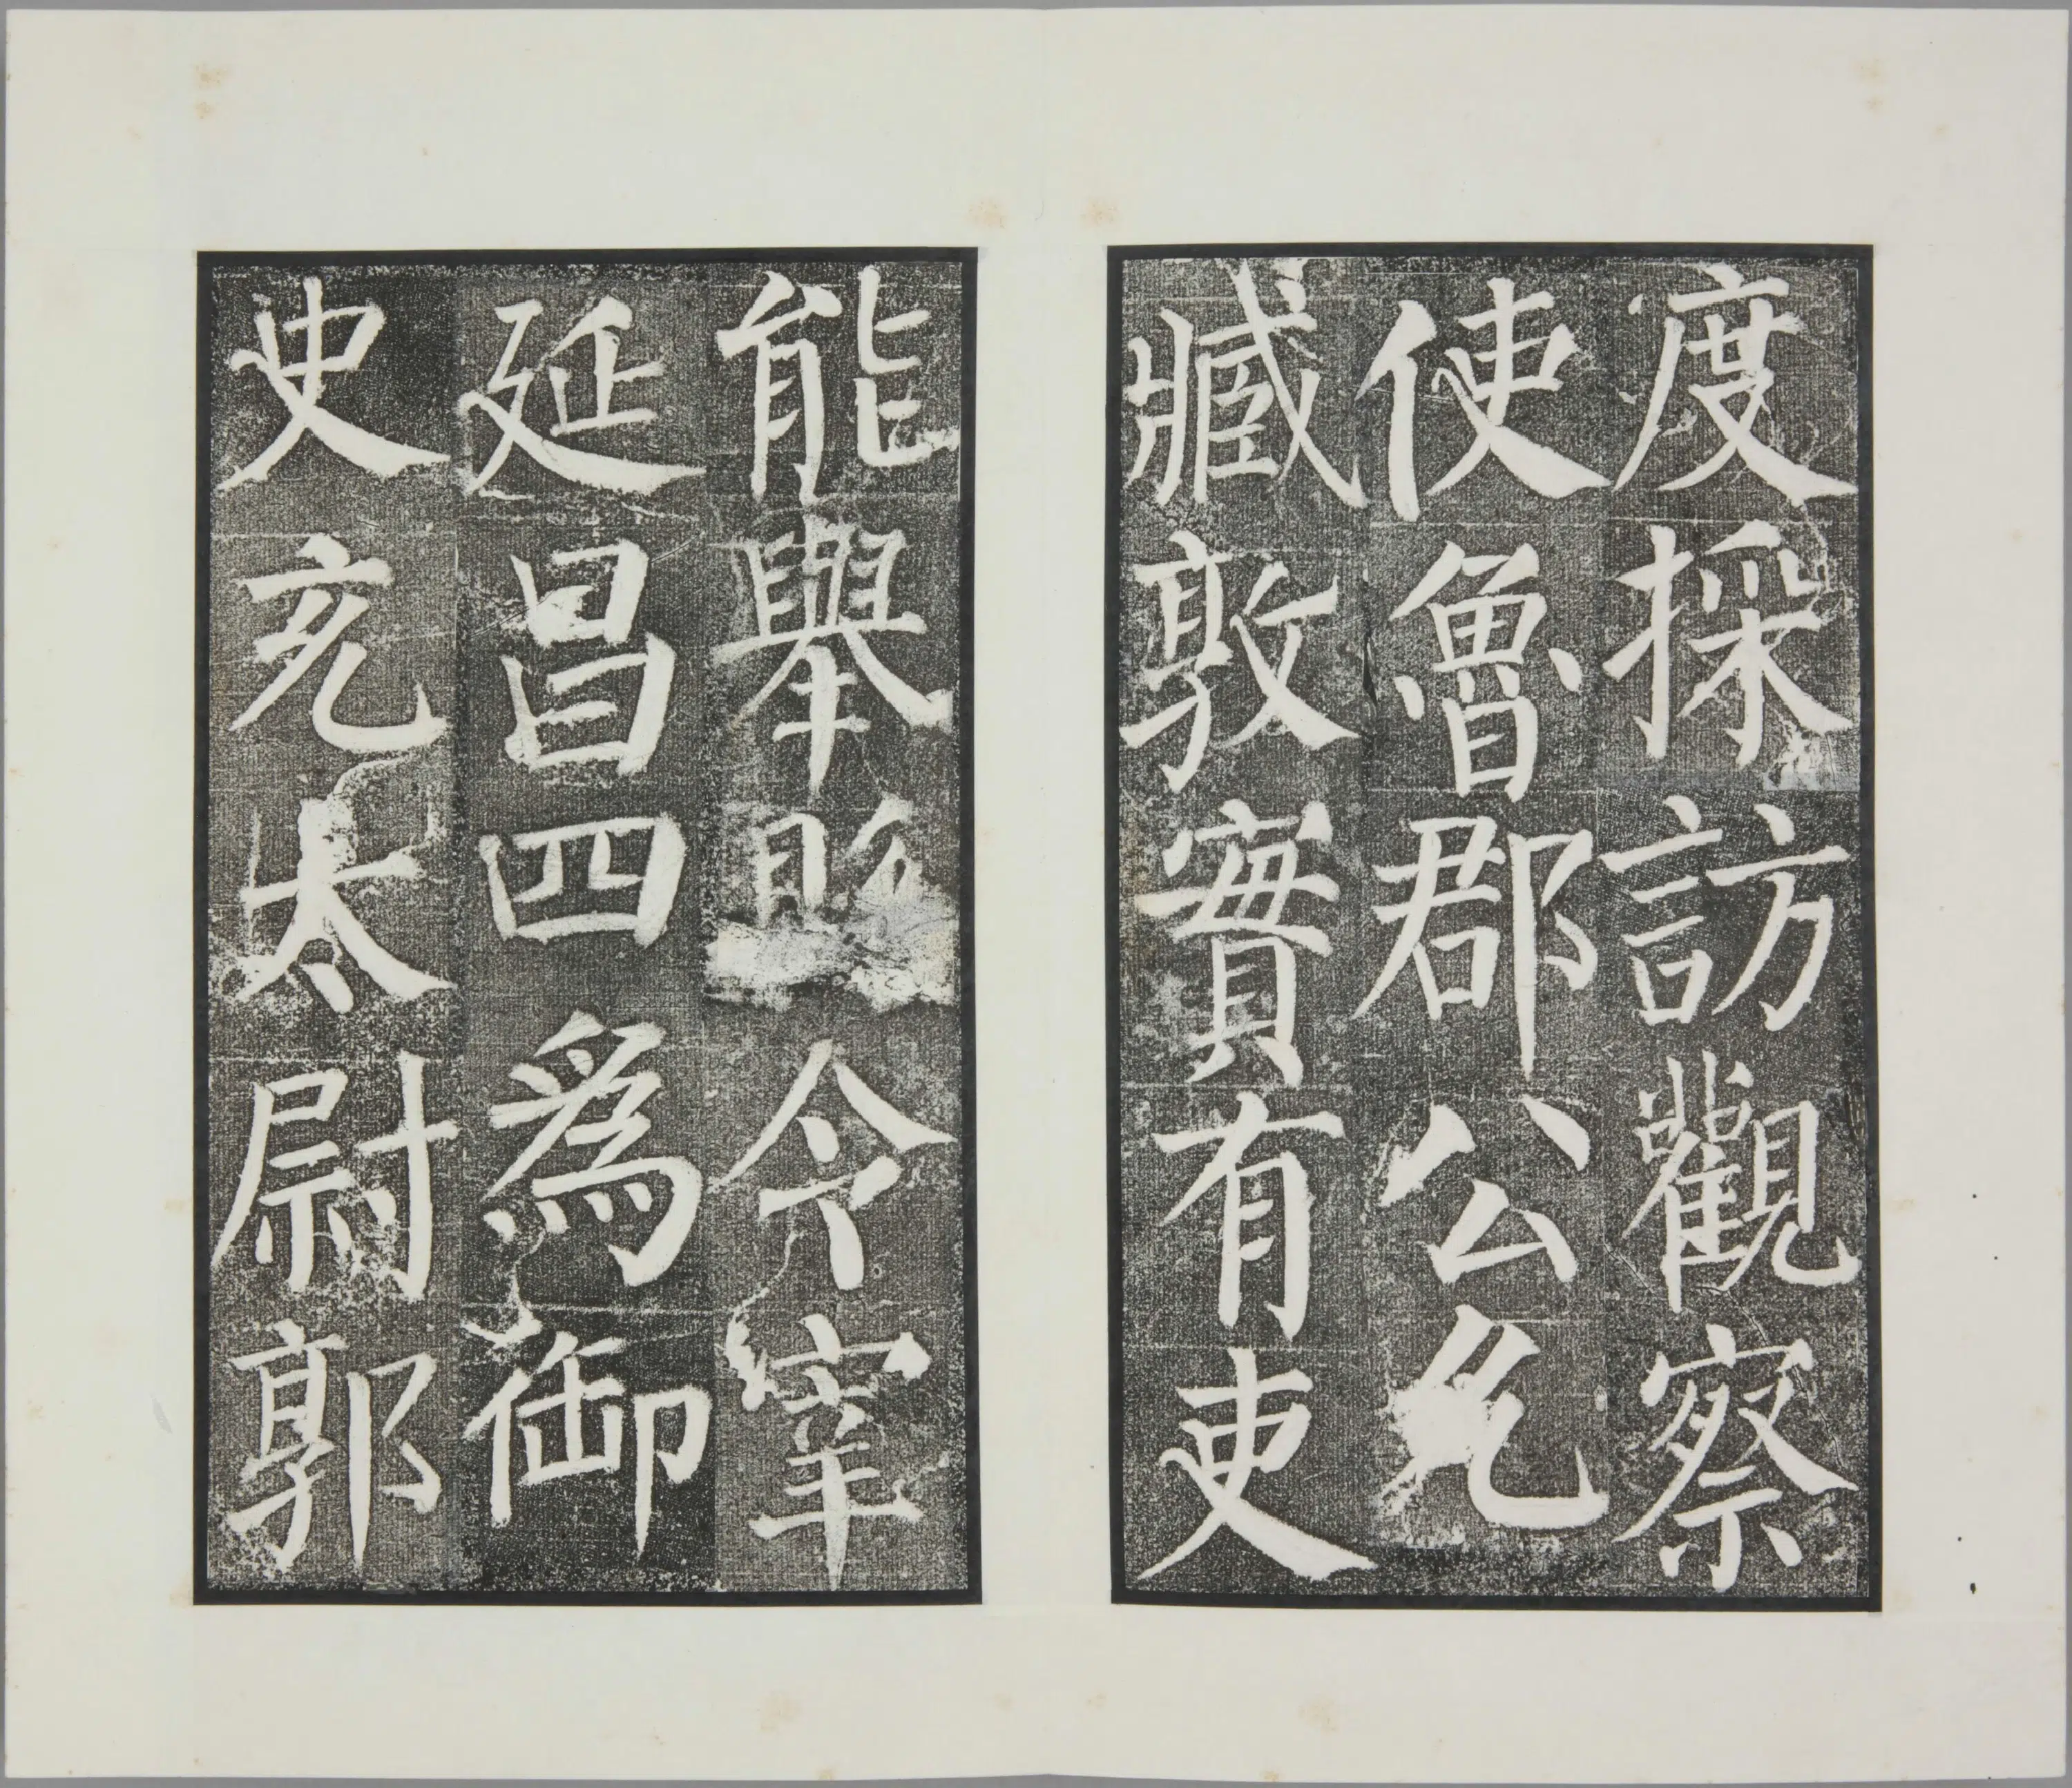 度採訪觀察
使魯郡公允
臧敦實有吏
能舉縣令宰
延昌四爲御
史充太尉郭